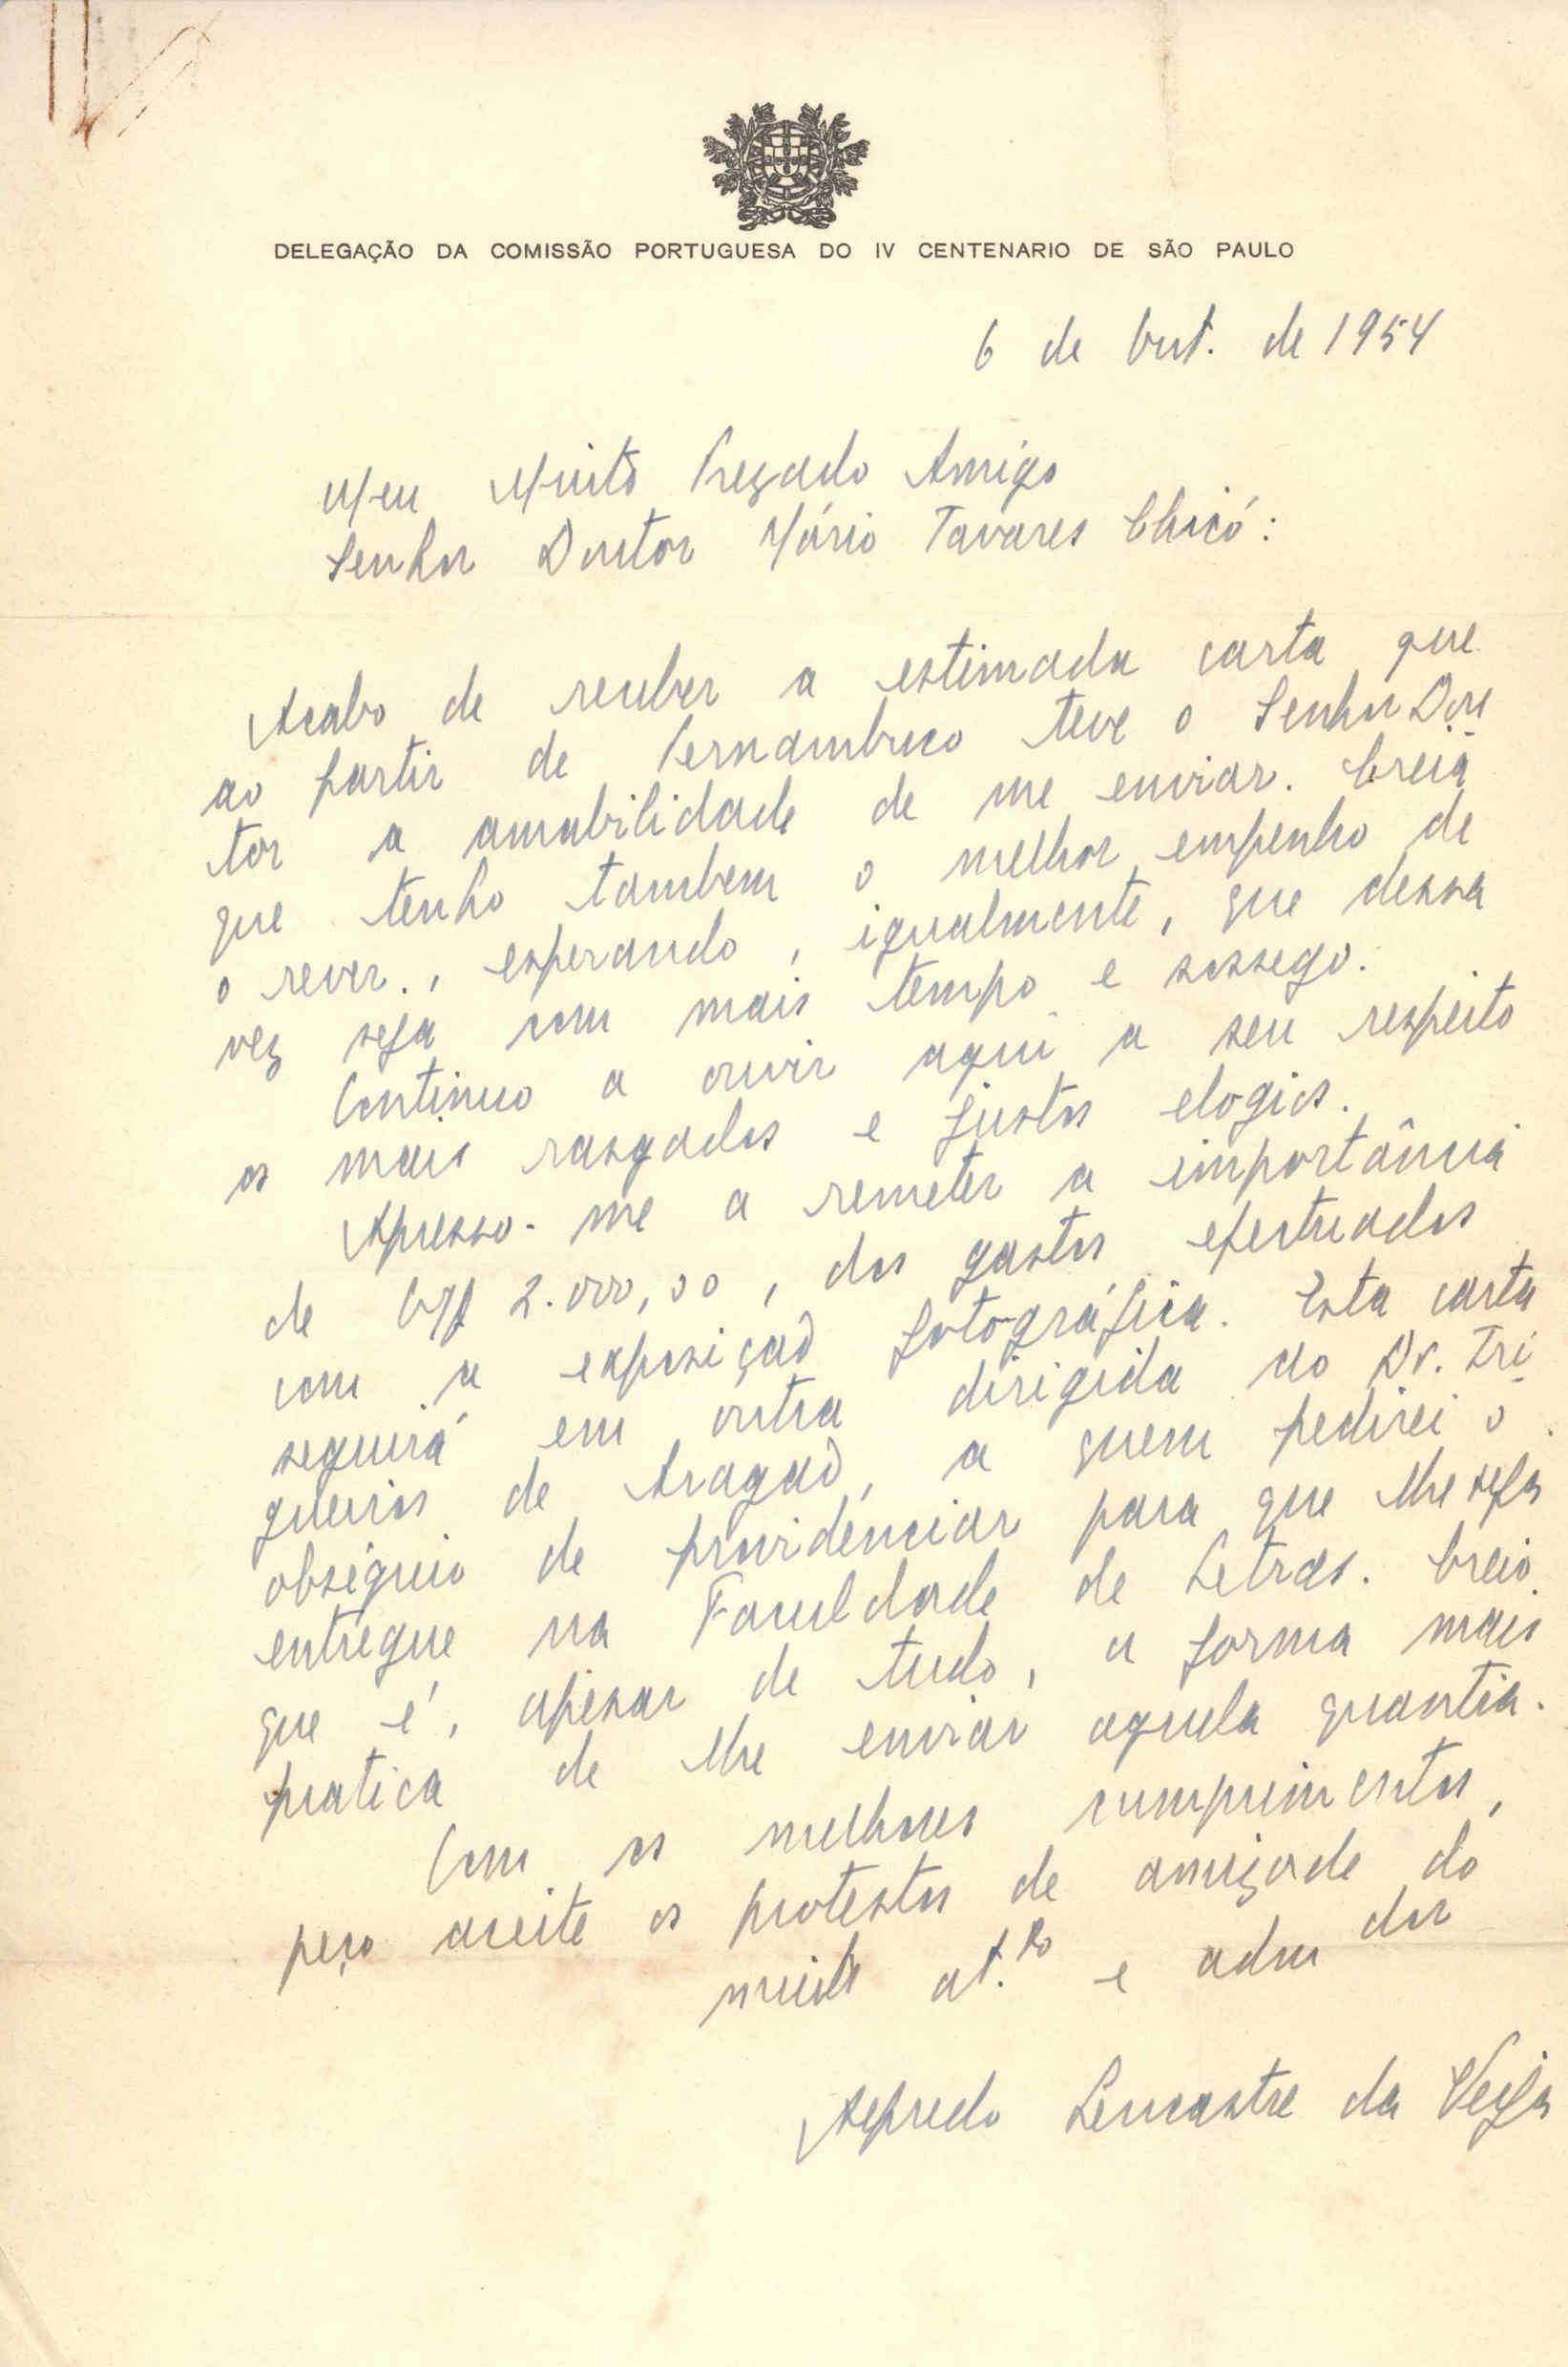 DELEGAÇÃO DA COMISSÃO PORTUGUESA DO IV CENTENARIO DE SÃO PAULO
6 de Out. de 1954
Meu Muito Prezado Amigo
Senhor Doutor Mário Tavares Chicó:
Acabo de receber a estimada carta que
ao partir de Pernambuco teve o Senhor Dou
tor a amabilidade de me enviar. Creia
que tenho tambem o melhor empenho de
o rever., esperando, igualmente, que dessa
vez seja com mais tempo e sossego.
Continuo a ouvir aqui a seu respeito
os mais rasgados e justos elogios.
Apresso-me a remeter a importância
de Cr$ 2.000,00, dos gastos efectuados
com a exposição fotográfica. Esta carta
seguirá em outra dirigida ao Dr. Tri
gueiros de Aragão, a quem pedirei o
obséquio de providenciar para que lhe seja
entregue na Faculdade de Letras. Creio
que é, apesar de tudo, a forma mais
pratica de lhe enviar aquela quantia.
Com os melhores cumprimentos,
peço aceite os protestos de amizade do
muito at.to e adm dor
Alfredo Lencastre da Veiga